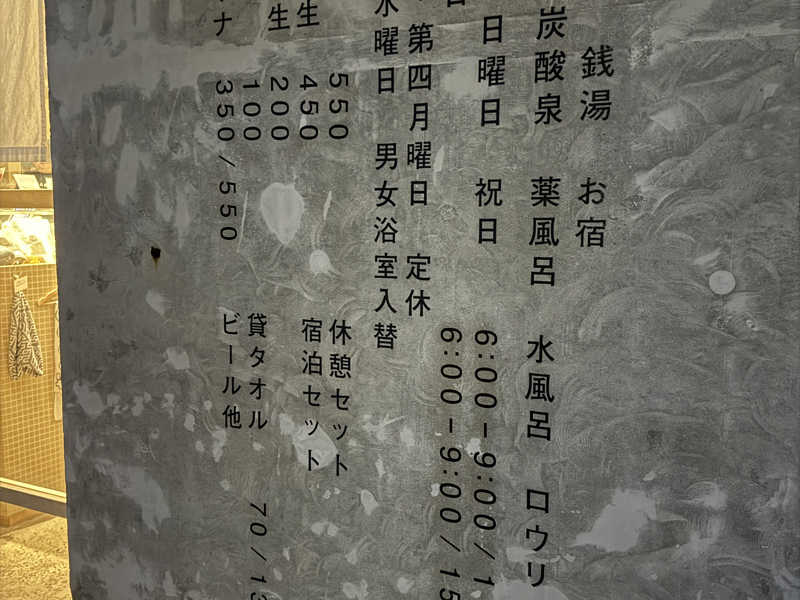 銭湯 お宿
炭酸泉 薬風呂 水風呂 ロウリ
日曜日 祝日 6:00-9:00/1
日 6:00-9:00/15
第四月曜日 定休
水曜日 男女浴室入替
550 休憩セット
生 450 宿泊セット
生 200
100 貸タオル 70/13
ナ 350/550 ビール他